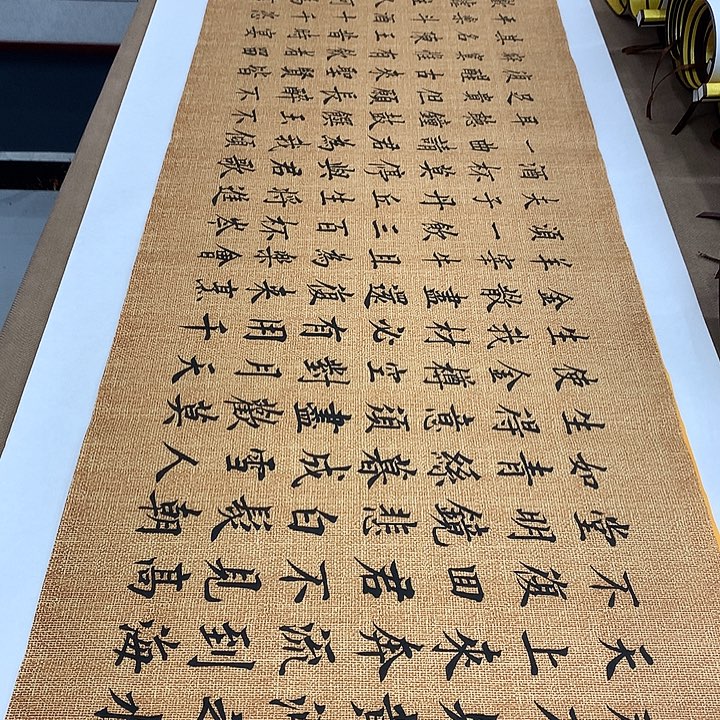 天上來奔流到海
不復回君不見高
堂明鏡悲白髮朝
如青絲暮成雪人
生得意須盡歡莫
使金樽空對月天
生我材必有用千
金散盡還復來烹
羊宰牛且為樂會
須一飲三百杯岑
夫子丹丘生將進
酒杯莫停與君歌
一曲請君為我傾
耳聽鐘鼓饌玉不
足貴但願長醉不
復醒古來聖賢皆
寂寞惟有飲者留